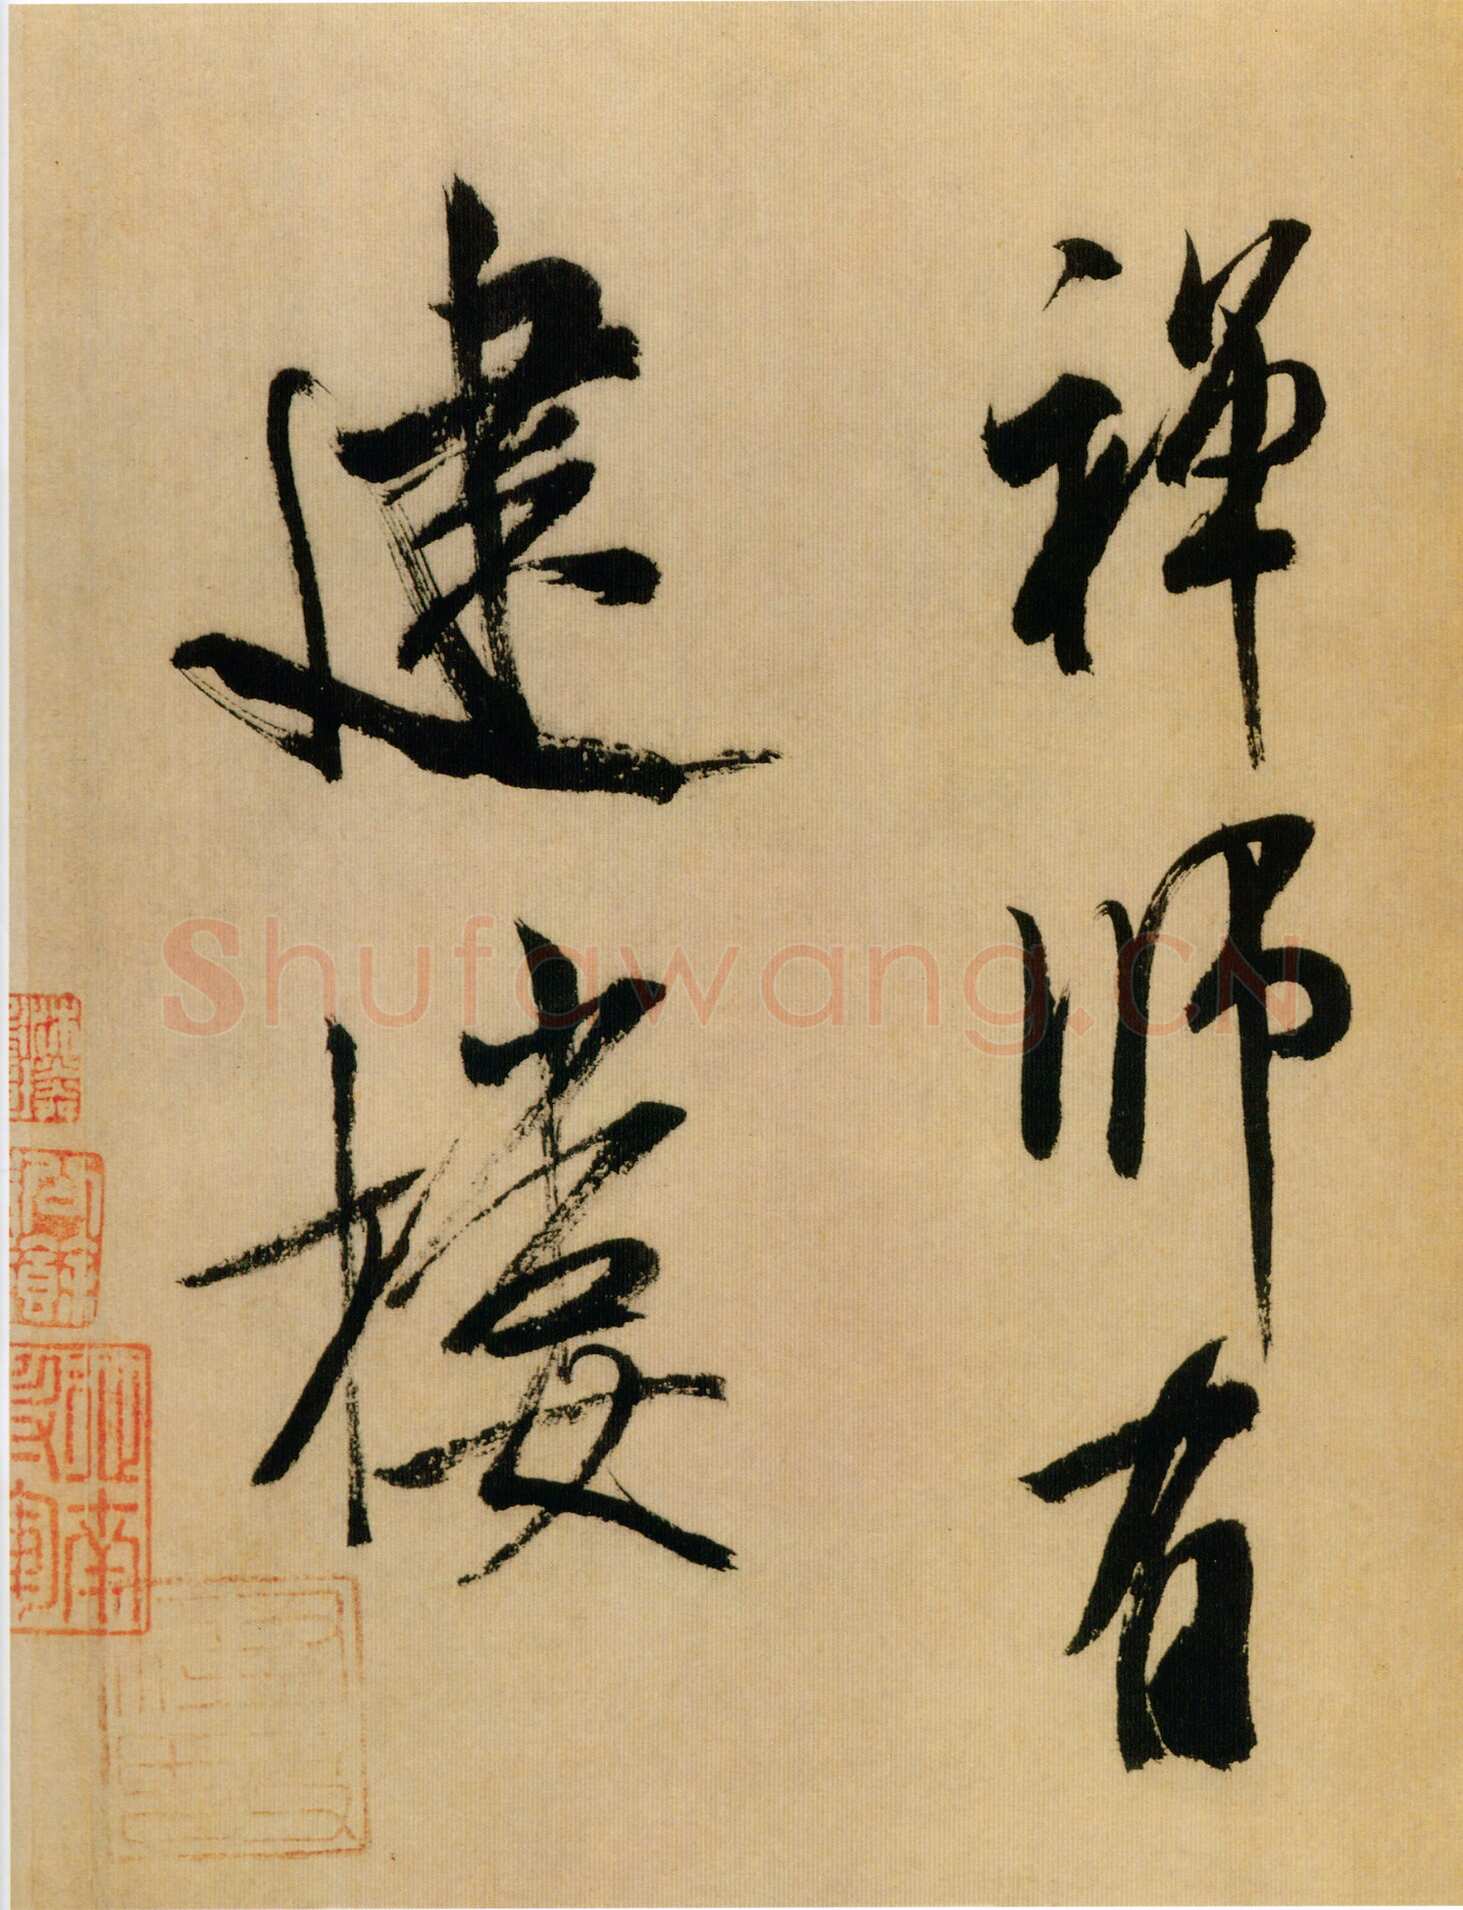 禪師有
建樓
Shufawang.CN